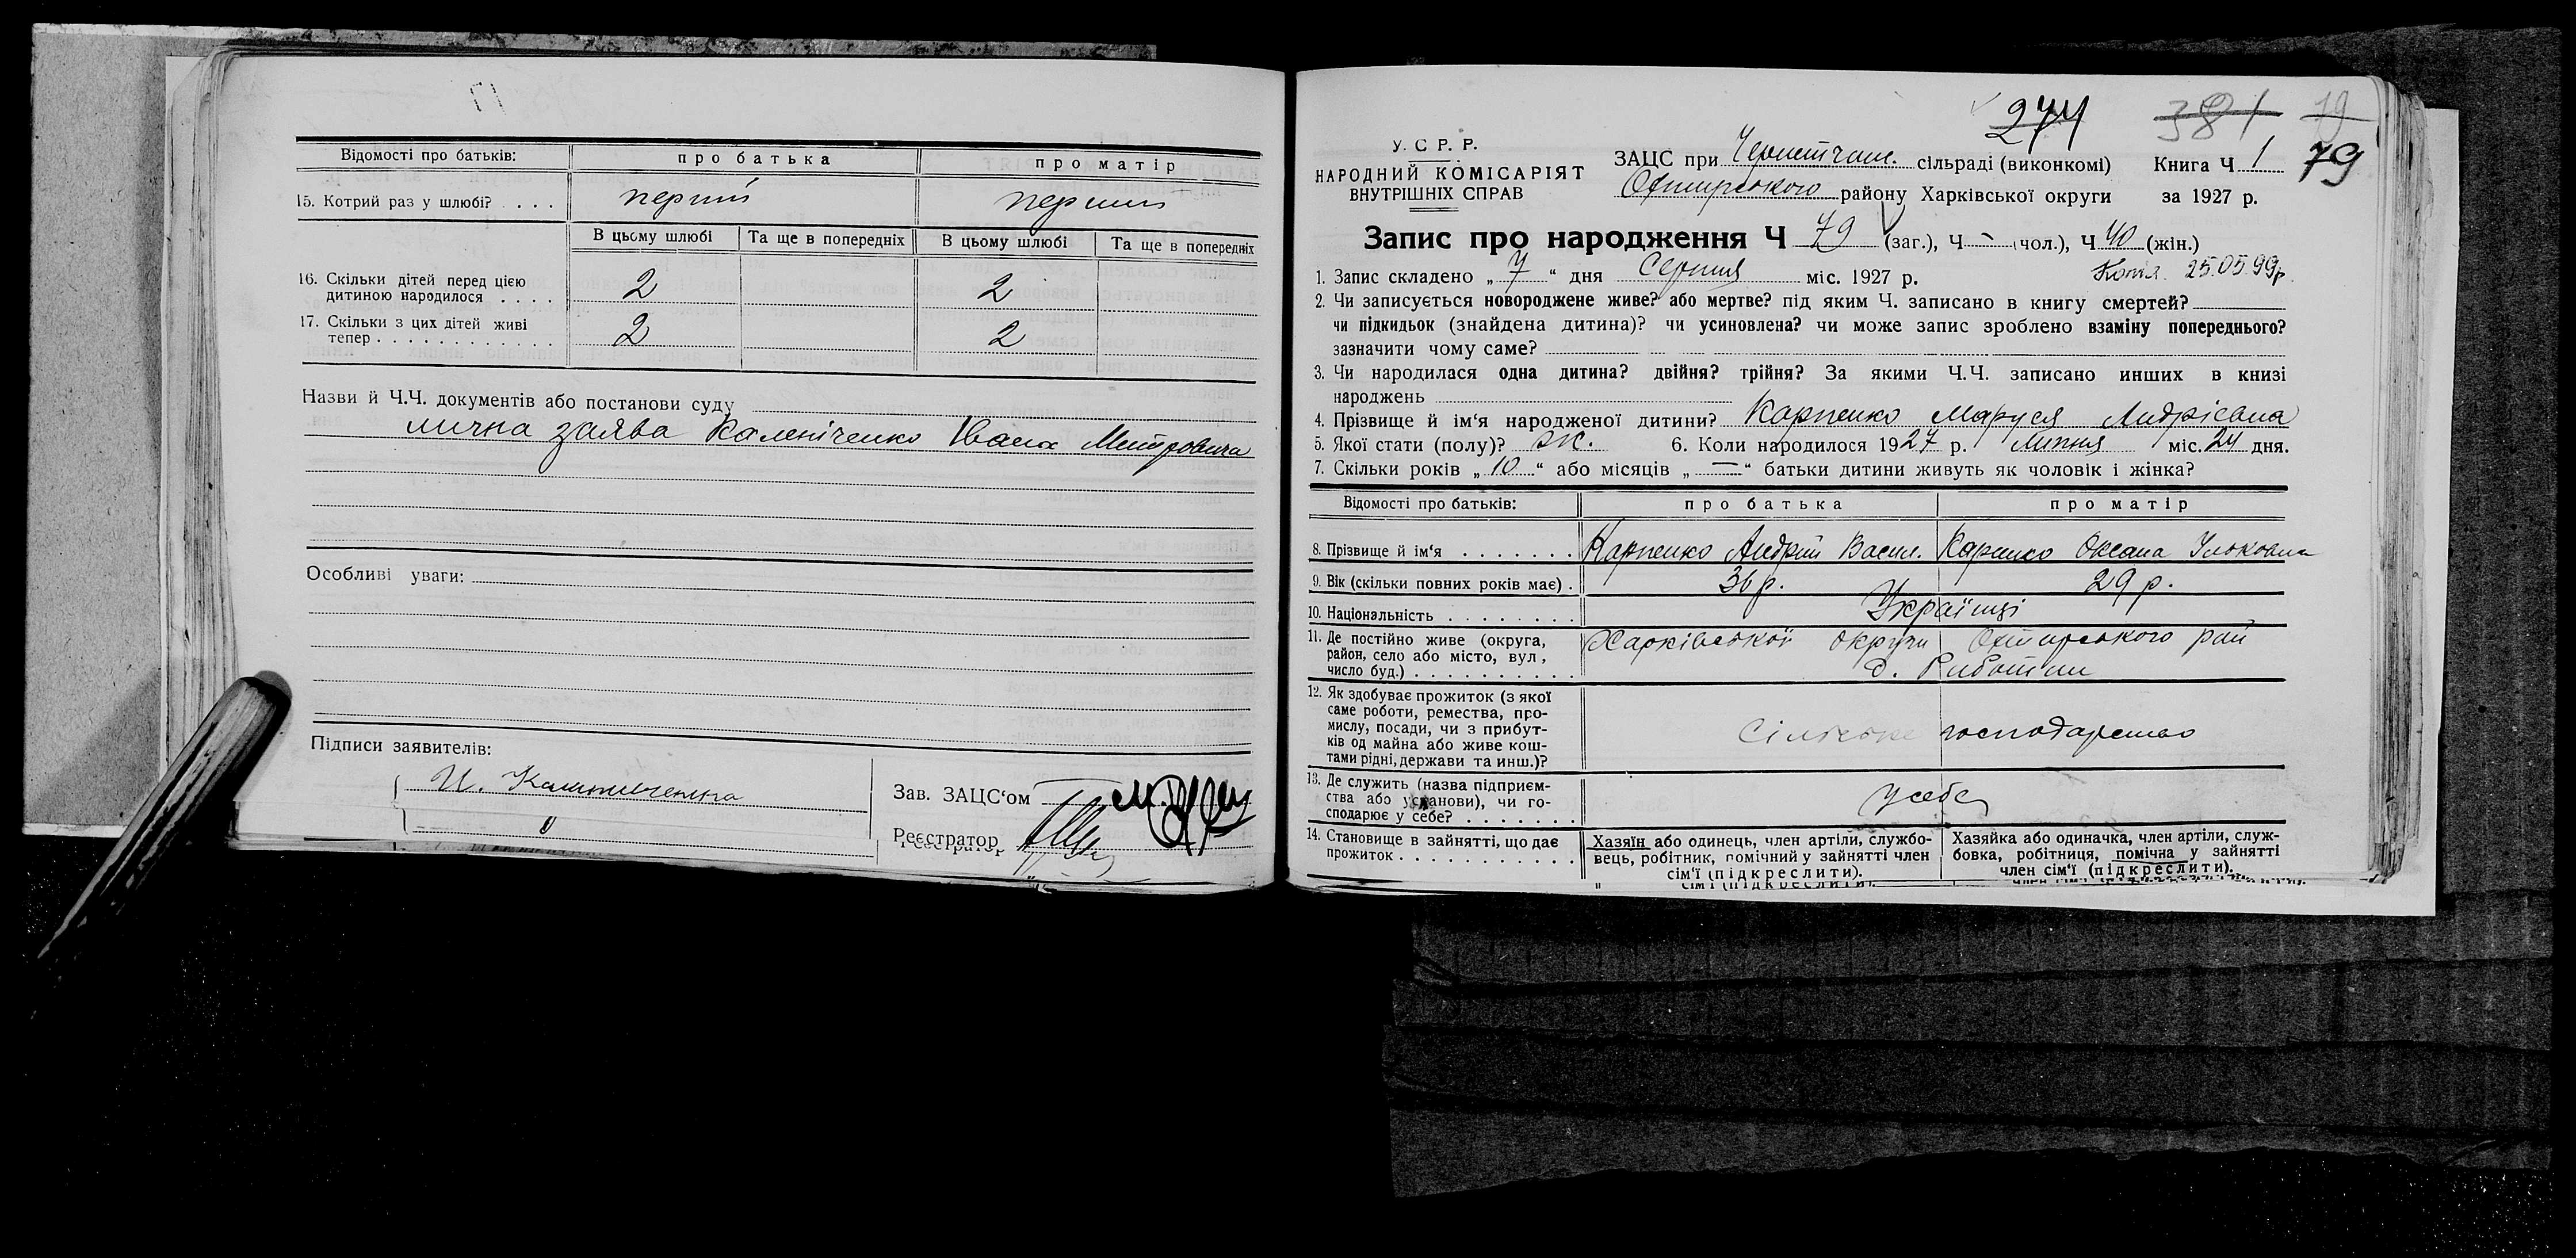 Відомості про батьків: про батька про матір
15. Котрий раз у шлюбі? . . . перший перший
В цьому шлюбі Та ще в попередніх В цьому шлюбі Та ще в попередніх
16. Скільки дітей перед цією
дитиною народилося . . . . 2 2
17. Скільки з цих дітей живі
тепер . . . . . . . . . . . . . 2 2
Назви й Ч.Ч. документів або постанови суду
лична заява Каленіченко Івана Митровича
Особливі уваги:
Підписи заявителів:
И. Калиниченко
Зав. ЗАЦС‘ом
Реєстратор
274 381 79
У. С Р. Р.
НАРОДНИЙ КОМІСАРІЯТ
ВНУТРІШНІХ СПРАВ
ЗАЦС при сільраді (виконкомі) Книга Ч 1 79
Охтирського району Харківської округи за 1927 р.
Запис про народження Ч 79 (заг.), Ч - (чол.), Ч 40 (жін.)
Копія 25.05.99р.
1. Запис складено „ 7 “ дня Серпня міс. 1927 р.
2. Чи записується новороджене живе? або мертве? під яким Ч. записано в книгу смертей?
чи підкидьок (знайдена дитина)? чи усиновлена? чи може запис зроблено взаміну попереднього?
зазначити чому саме?
3. Чи народилася одна дитина? двійня? трійня? За якими Ч.Ч. записано инших в книзі
народжень
4. Прізвище й ім‘я народженої дитини? Карпенко Маруся Андрієвна
5. Якої стати (полу)? Ж. 6. Коли народилося 1927 р. Липня міс. 24 дня.
7. Скільки років „ 10 “ або місяців „ — “ батьки дитини живуть як чоловік і жінка?
Відомості про батьків: про батька про матір
8. Прізвище й ім‘я . . . . . . . Карпенко Андрій Васил. Карпенко Оксана Ільковна
9. Вік (скільки повних років має) . 36 р. 29 р.
10. Національність . . . . . . . . Українці
11. Де постійно живе (округа,
район, село або місто, вул,
число буд.) . . . . . . . . . . Харківської округи Охтирського рай
12. Як здобуває прожиток (з якої
саме роботи, ремества, про-
мислу, посади, чи з прибут-
ків од майна або живе кош-
тами рідні, держави та инш.)? Сільське господарство
13. Де служить (назва підприєм-
ства або установи), чи го-
сподарює у себе? . . . . . . . у себе
14. Становище в зайнятті, що дає
прожиток . . . . . . . . . . .
Хазяїн або одинець, член артіли, службо-
вець, робітник, помічний у зайнятті член
сім‘ї (підкреслити).
Хазяйка або одиначка, член артіли, служ-
бовка, робітниця, помічна у зайнятті
член сім‘ї (підкреслити).